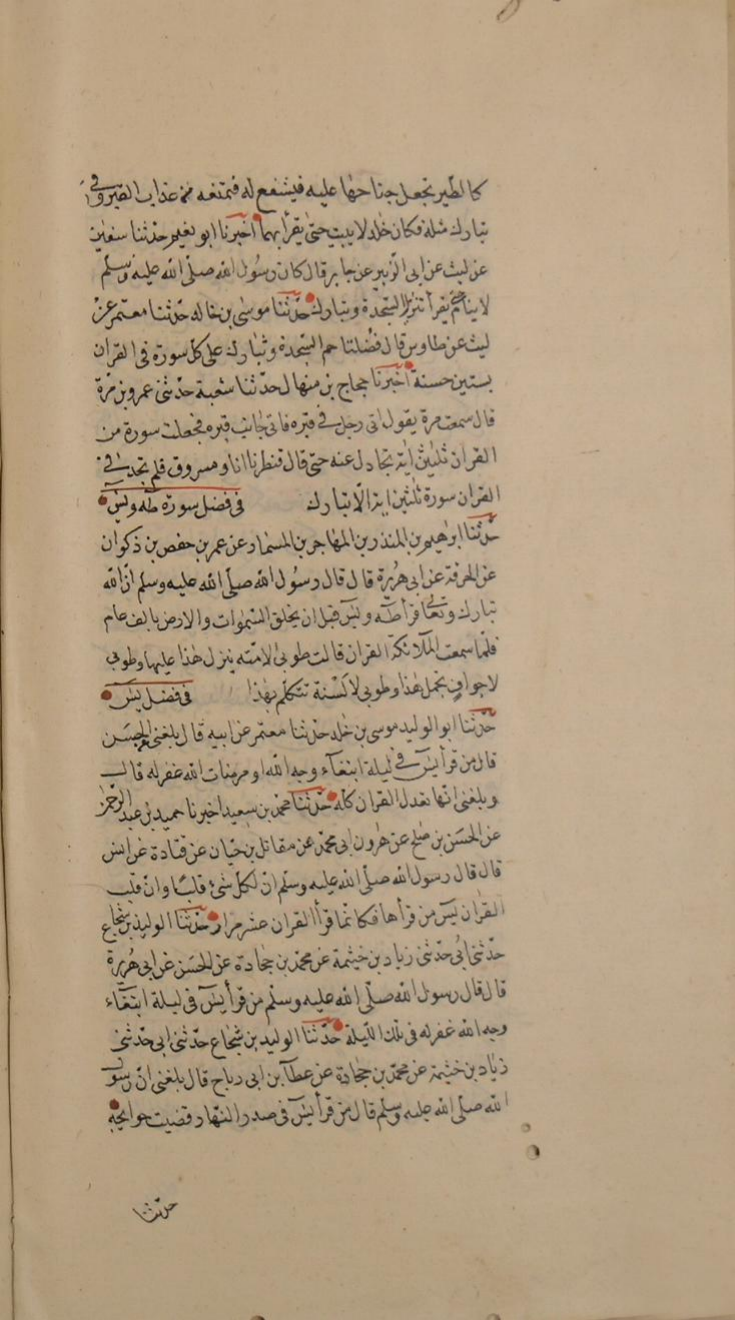 كالطير تجعل جناحها عليه فيشفع له فتمنعه من عذاب القبر وفي
تبارك مثله فكان خلد لا يبيت حتى يقرأ بهما اخبرنا ابو نعيم حدثنا سفين
عن ليث عن ابى الزبير عن جابر قال كان رسول الله صلى الله عليه وسلم
لا ينام حتى يقرأ تنزيل السجدة وتبارك حدثنا موسى بن خالد حدثنا معتمر عن
ليث عن طاوس قال فضلتا حم السجدة وتبارك على كل سورة فى القران
بستين حسنة اخبرنا حجاج بن منهال حدثنا شعبة حدثنى عمرو بن مرة
قال سمعت مرة يقول اتى رجل فى قبره فاتى جانب قبره فجعلت سورة من
القران ثلثين اية تجادل عنه حتى قال فنظرنا انا ومسروق فلم نجد فى
القران سورة ثلثين اية الا تبارك فى فضل سورة طه ويس
حدثنا ابرهيم بن المنذر بن المهاجر بن المسمار عن عمر بن حفص بن ذكوان
عن الحرقة عن ابى هريرة قال قال رسول الله صلى الله عليه وسلم ان الله
تبارك وتعا قرأ طه ويس قبل ان يخلق السموات والارض بالف عام
فلما سمعت الملائكة القران قالت طوبى لامته ينزل هذا عليها وطوبى
لاجواف تحمل هذا وطوبى لالسنة تتكلم بهذا فى فضل يس
حدثنا ابو الوليد موسى بن خلد حدثنا معتمر عن ابيه قال بلغنى عن الحسن
قال من قرأ يس فى ليلة ابتغاء وجه الله او مرضات الله غفر له قال
وبلغنى انها تعدل القران كله حدثنا محمد بن سعيد اخبرنا حميد بن عبد الرحمن
عن الحسن بن صلح عن هرون ابى محمد عن مقاتل بن حيان عن قتادة عن انس
قال قال رسول الله صلى الله عليه وسلم ان لكل شئ قلبا وان قلب
القران يس من قرأها فكانما قرأ القران عشر مرار حدثنا الوليد بن شجاع
حدثنى ابى حدثنى زياد بن خيثمة عن محمد بن جحادة عن الحسن عن ابى هريرة
قال قال رسول الله صلى الله عليه وسلم من قرأ يس فى ليلة ابتغاء
وجه الله غفر له فى تلك الليلة حدثنا الوليد بن شجاع حدثنى ابى حدثنى
زياد بن خثيمة عن محمد بن جحادة عن عطآ بن ابى رباح قال بلغنى ان رسول
الله صلى الله عليه وسلم قال من قرأ يس فى صدر النهار قضيت حوايجه
حدثنا